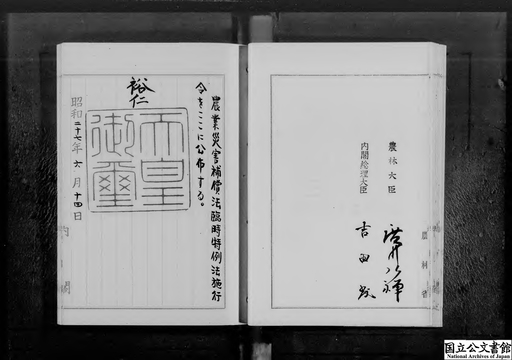 農業災害補償法臨時特例法施行
令をここに公布する。
裕仁
天皇
御璽
昭和二十七年六月十四日
内閣
農林大臣
廣川弘禅
内閣総理大臣
吉田茂
農林省
国立公文書館
National Archives of Japan